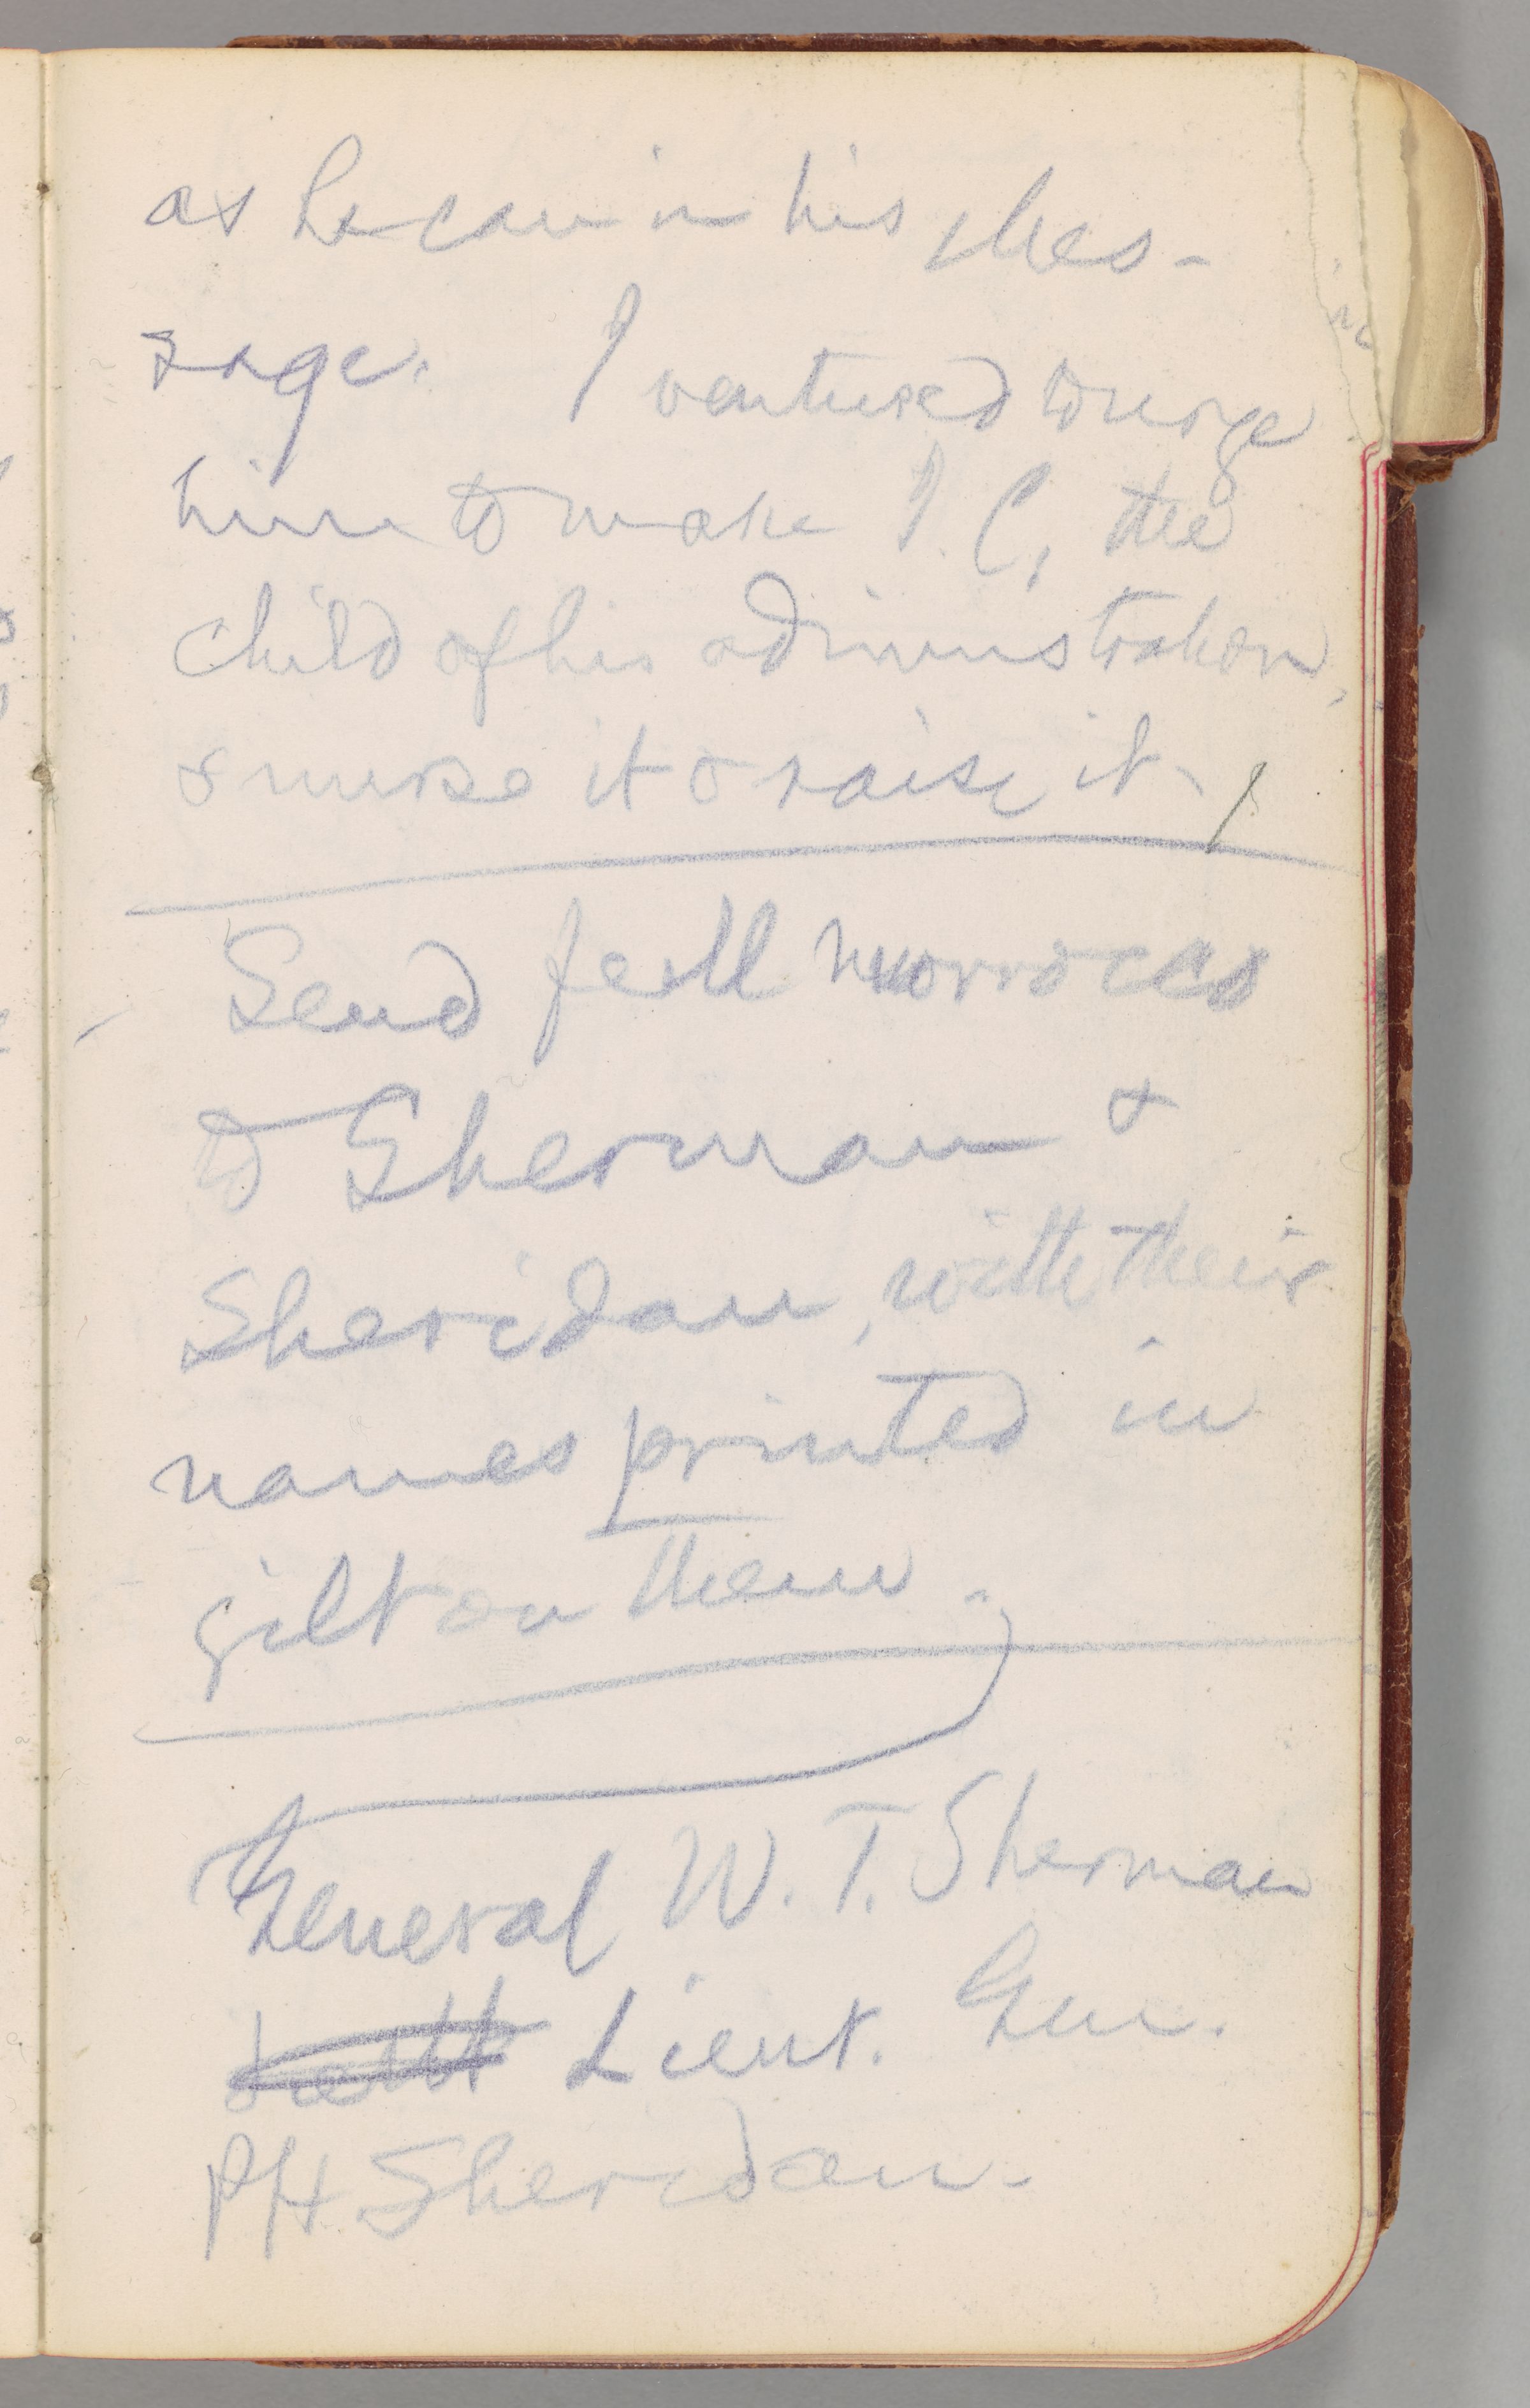 as he can in his Mes-
sage. I ventured to urge
him to make I. C, the
child of his administration,
& nurse it & raise it.
Send full moroccos
to Sherman &
Sheridan, with their
names printed in
gilt on them.
General W. T. Sherman
Lieut. Gen.
P H. Sheridan.